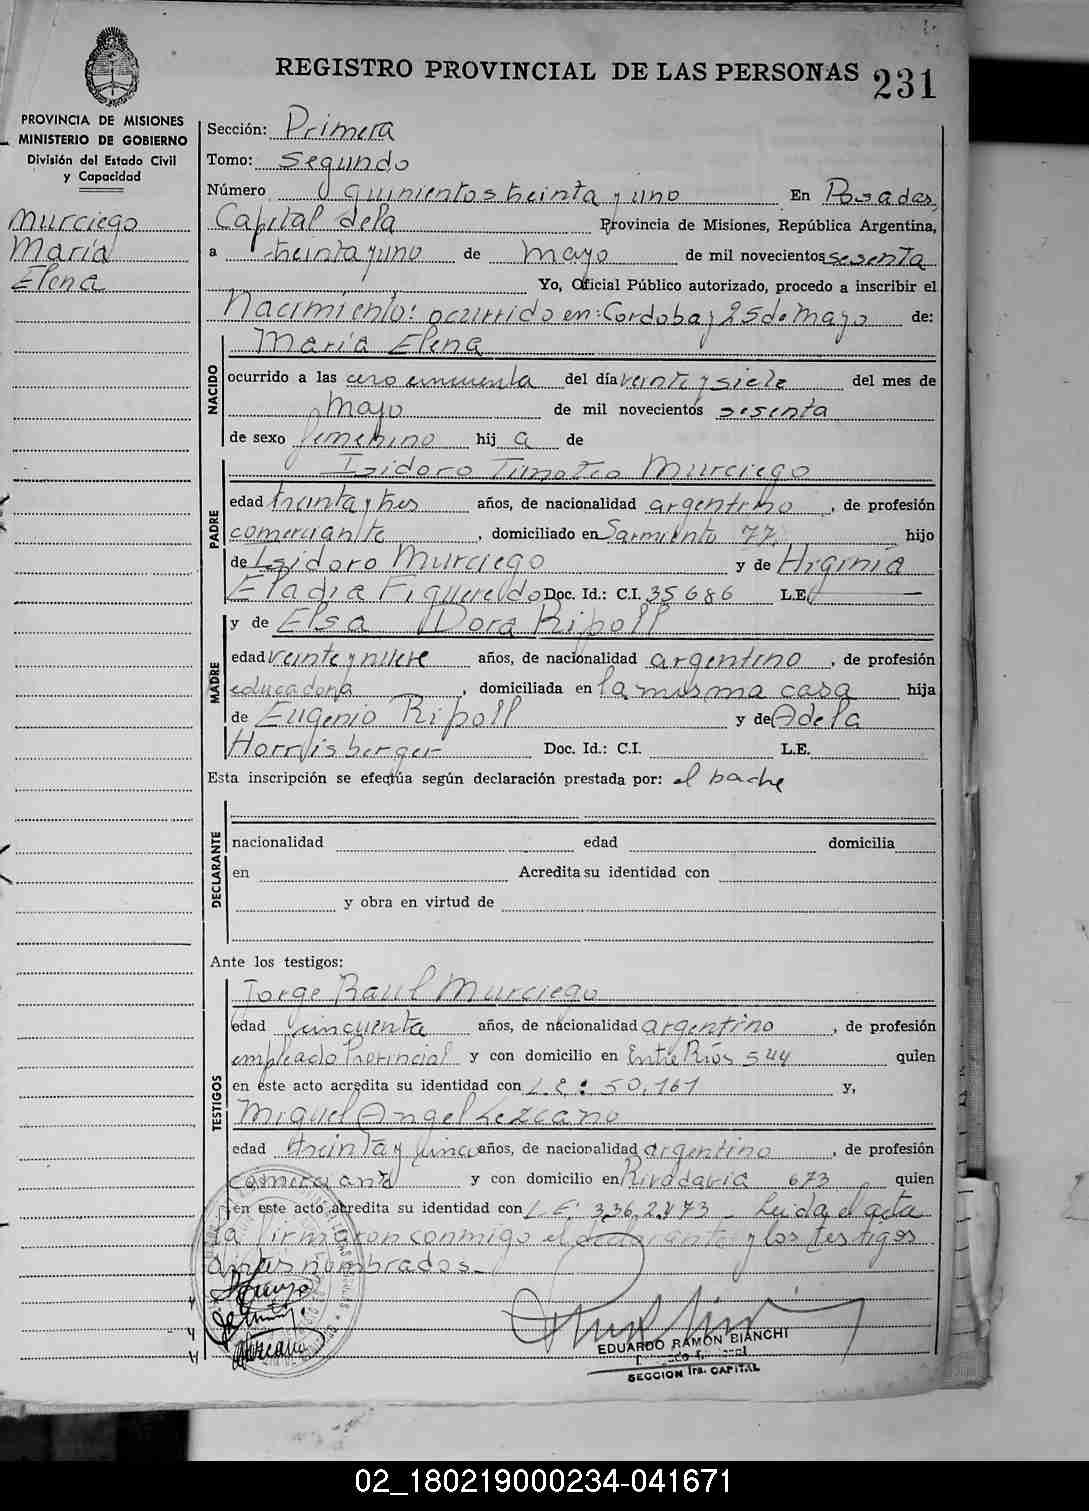 REGISTRO PROVINCIAL DE LAS PERSONAS 231
PROVINCIA DE MISIONES
MINISTERIO DE GOBIERNO
División del Estado Civil
y Capacidad
Murciego
María
Elena
Sección: Primera
Tomo: Segundo
Número quinientos treinta y uno En Posadas,
Capital dela Provincia de Misiones, República Argentina,
a treinta y uno de mayo de mil novecientos sesenta
Yo, Oficial Público autorizado, procedo a inscribir el
Nacimiento: ocurrido en: Cordoba y 25 de Mayo de:
NACIDO
María Elena
ocurrido a las cero cincuenta del día veinte y siete del mes de
Mayo de mil novecientos sesenta
de sexo femenino hij a de
PADRE
Izidoro Timoteo Murciego
edad treinta y tres años, de nacionalidad argentino, de profesión
comerciante, domiciliado en Sarmiento 77 hijo
de Izidoro Murciego y de Hirginia
Eladia Figueredo Doc. Id.: C.I. 35686 L.E.
MADRE
y de Elsa Dora Ripoll
edad veinte y nueve años, de nacionalidad argentino, de profesión
educadora, domiciliada en la misma casa hija
de Eugenio Ripoll y de Adela
Horrisberger Doc. Id.: C.I. L.E.
Esta inscripción se efectúa según declaración prestada por: el padre
DECLARANTE
nacionalidad edad domicilia
en Acredita su identidad con
y obra en virtud de
Ante los testigos:
TESTIGOS
Jorge Raul Murciego
edad cincuenta años, de nacionalidad argentino, de profesión
empleado Provincial y con domicilio en Entre Ríos 544 quien
en este acto acredita su identidad con L.E: 50.161 y,
Miguel Angel Lezcano
edad treinta y cinco años, de nacionalidad argentino, de profesión
comerciante y con domicilio en Rivadavia 673 quien
en este acto acredita su identidad con L.E: 3.362.873 - Leida el acta
la firmaron conmigo el declarante y los testigos
antes nombrados.-
EDUARDO RAMON BIANCHI
SECCION 1ra. CAPITAL
02_180219000234-041671